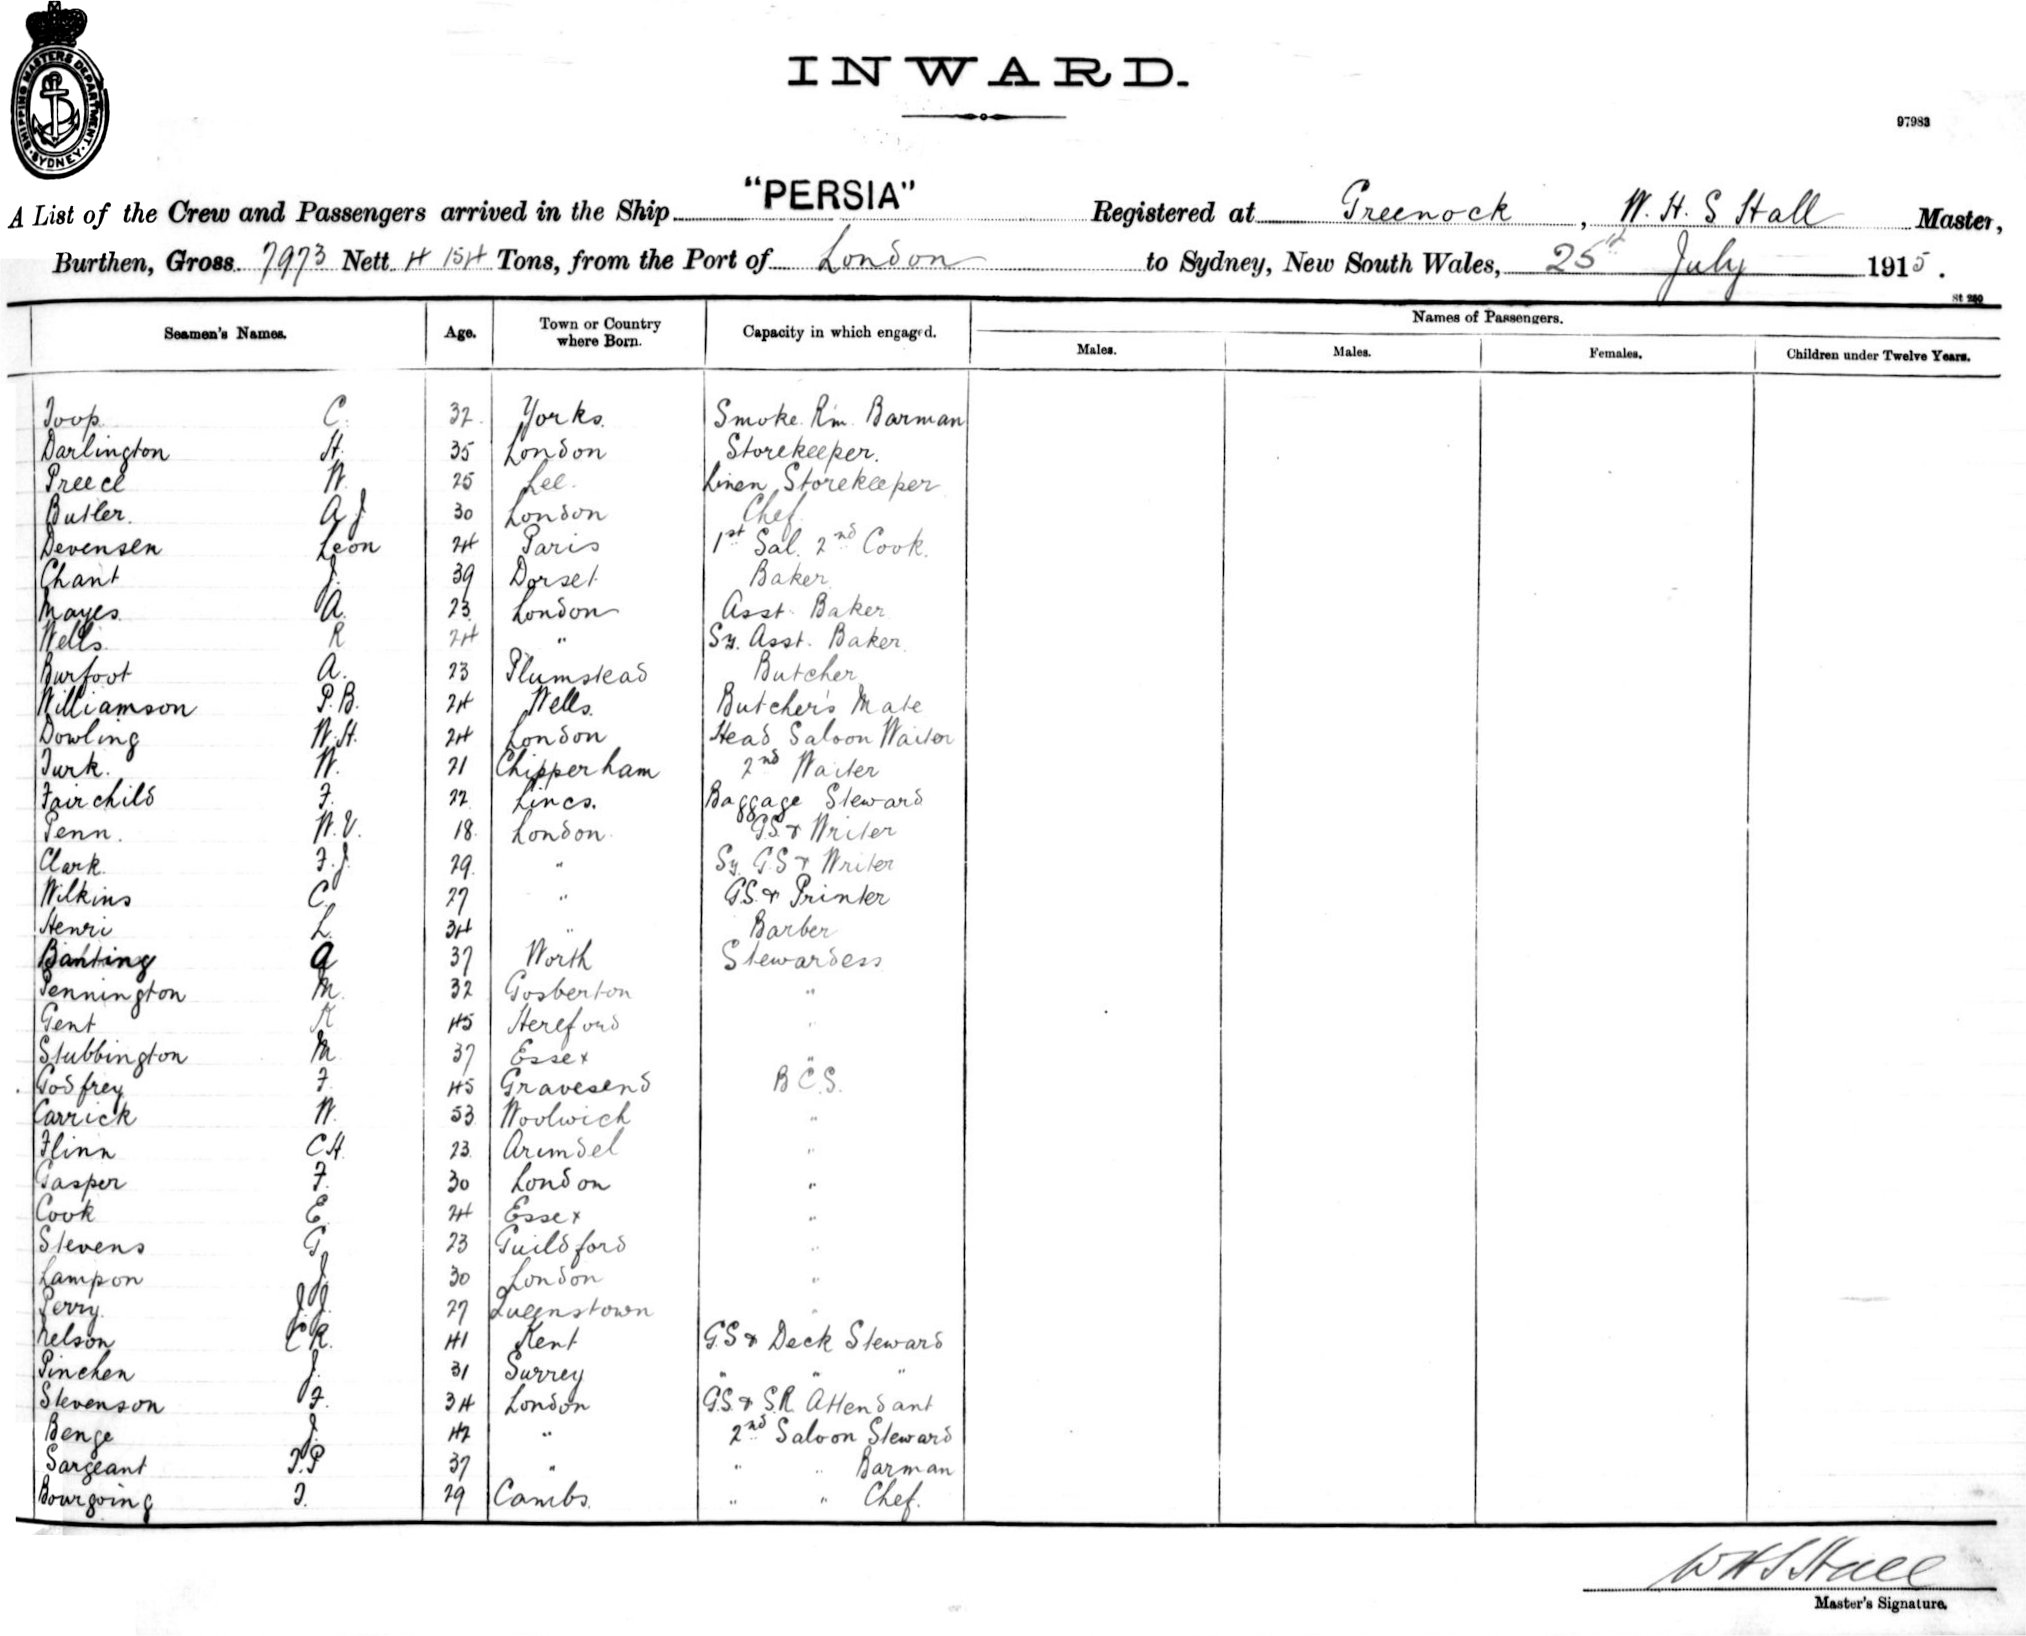 SHIPPING MASTERS DEPARTMENT. SYDNEY.
INWARD.
97983
A List of the Crew and Passengers arrived in the Ship "PERSIA" Registered at Greenock, W. H. S Hall Master,
Burthen, Gross 7973 Nett 4154 Tons, from the Port of London to Sydney, New South Wales, 25th July 1915.
St 260
Seamen's Names. Age. Town or Country where Born. Capacity in which engaged. Names of Passengers.
Males. Males. Females. Children under Twelve Years.
Toop C. 32 Yorks. Smoke Rm. Barman
Darlington H. 35 London Storekeeper.
Preece W. 25 Lee. Linen Storekeeper
Butler. A J 30 London Chef
Devensen Leon 24 Paris 1st Sal. 2nd Cook.
Chant J. 39 Dorset Baker
Mayes A. 23 London Asst. Baker
Wells R 24 " Sy. Asst. Baker
Burfoot A. 23 Plumstead Butcher
Williamson P. B. 24 Wells. Butcher's Mate
Dowling W. H. 24 London Head Saloon Waiter
Turk. W. 21 Chipperham 2nd Waiter
Fairchild F. 22 Lincs. Baggage Steward
Penn. W. V. 18 London. G.S. & Writer
Clark F. J. 29 " Sy. G.S & Writer
Wilkins C. 27 " G.S. & Printer
Henri L. 34 " Barber
Banting A 37 Worth Stewardess
Pennington M. 32 Gosberton "
Gent K 45 Hereford "
Stubbington M 37 Essex "
Godfrey F. 45 Gravesend B C. S.
Carrick W. 53 Woolwich "
Flinn C H. 23 Arundel "
Gasper F. 30 London "
Cook E 24 Essex "
Stevens G 23 Guildford "
Lampon J. 30 London "
Perry. J. J. 27 Queenstown "
Nelson C R. 41 Kent G.S & Deck Steward
Pinchen J. 31 Surrey " " "
Stevenson F. 34 London G.S. & S.R. Attendant
Benge J. 42 " 2nd Saloon Steward
Sargeant T. P 37 " " " Barman
Bourgoing T. 29 Cambs. " " Chef.
W H S Hall
Master's Signature.